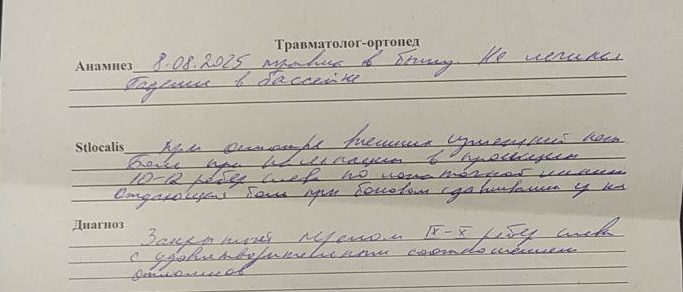 Травматолог-ортопед
Анамнез 8.08.2025 травма в быту. Не лечился
Падение в бассейне
Stlocalis При осмотре внешних изменений нет
Боль при пальпации в проекции
10-12 ребер слева по лопаточной линии
Отдающая боль при боковом сдавливании гр кл
Диагноз
Закрытый перелом IX-X ребер слева
с удовлетворительным соотношением
отломков